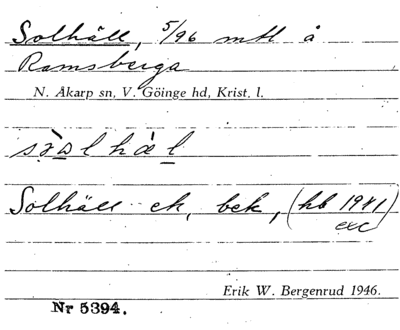 Solhäll, 5/96 mtl å
Ramsberga
N. Åkarp sn, V. Göinge hd, Krist. l.
Solhäll ek, bek, (hb 1941)
exc
Erik W. Bergenrud 1946.
Nr 5394.